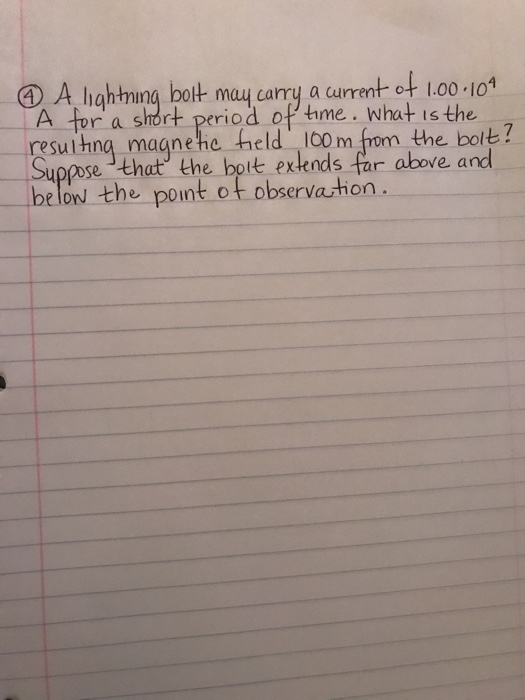 ④ A lightning bolt may carry a current of 1.00·10⁴
A for a short period of time. What is the
resulting magnetic field 100m from the bolt?
Suppose that the bolt extends far above and
below the point of observation.